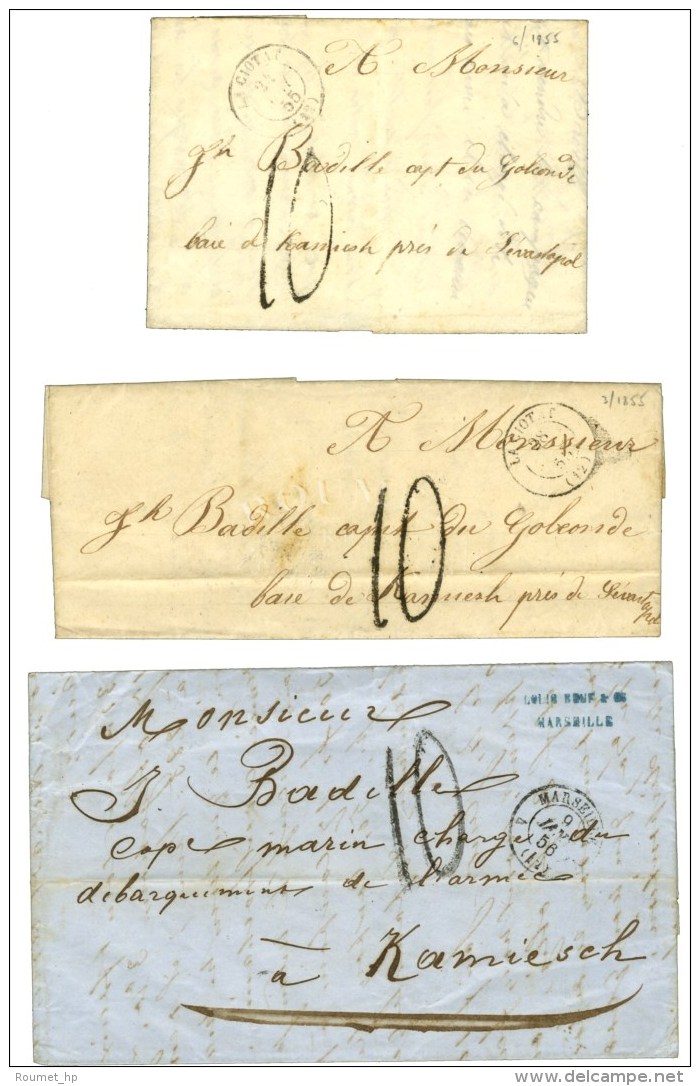 6/1855
LA CIOTAT
24
55
(12)
A Monsieur
Jh Badille capt du Golconde
10
baie de Kamiesh près de Sévastopol
3/1855
LA CIOTAT
26
55
(12)
A Monssieur
Jh Badille capit du Golconde
10
baie de Kamiesh près de Sévastopol
LOUIS REUF & CE
MARSEILLE
Monsieur
J. Badille
10
MARSEILLE
A
9
JANV
56
(12)
cape marin chargé du
debarquement de l'armée
à Kamiesch
© Roumet_hp
delcampe.net